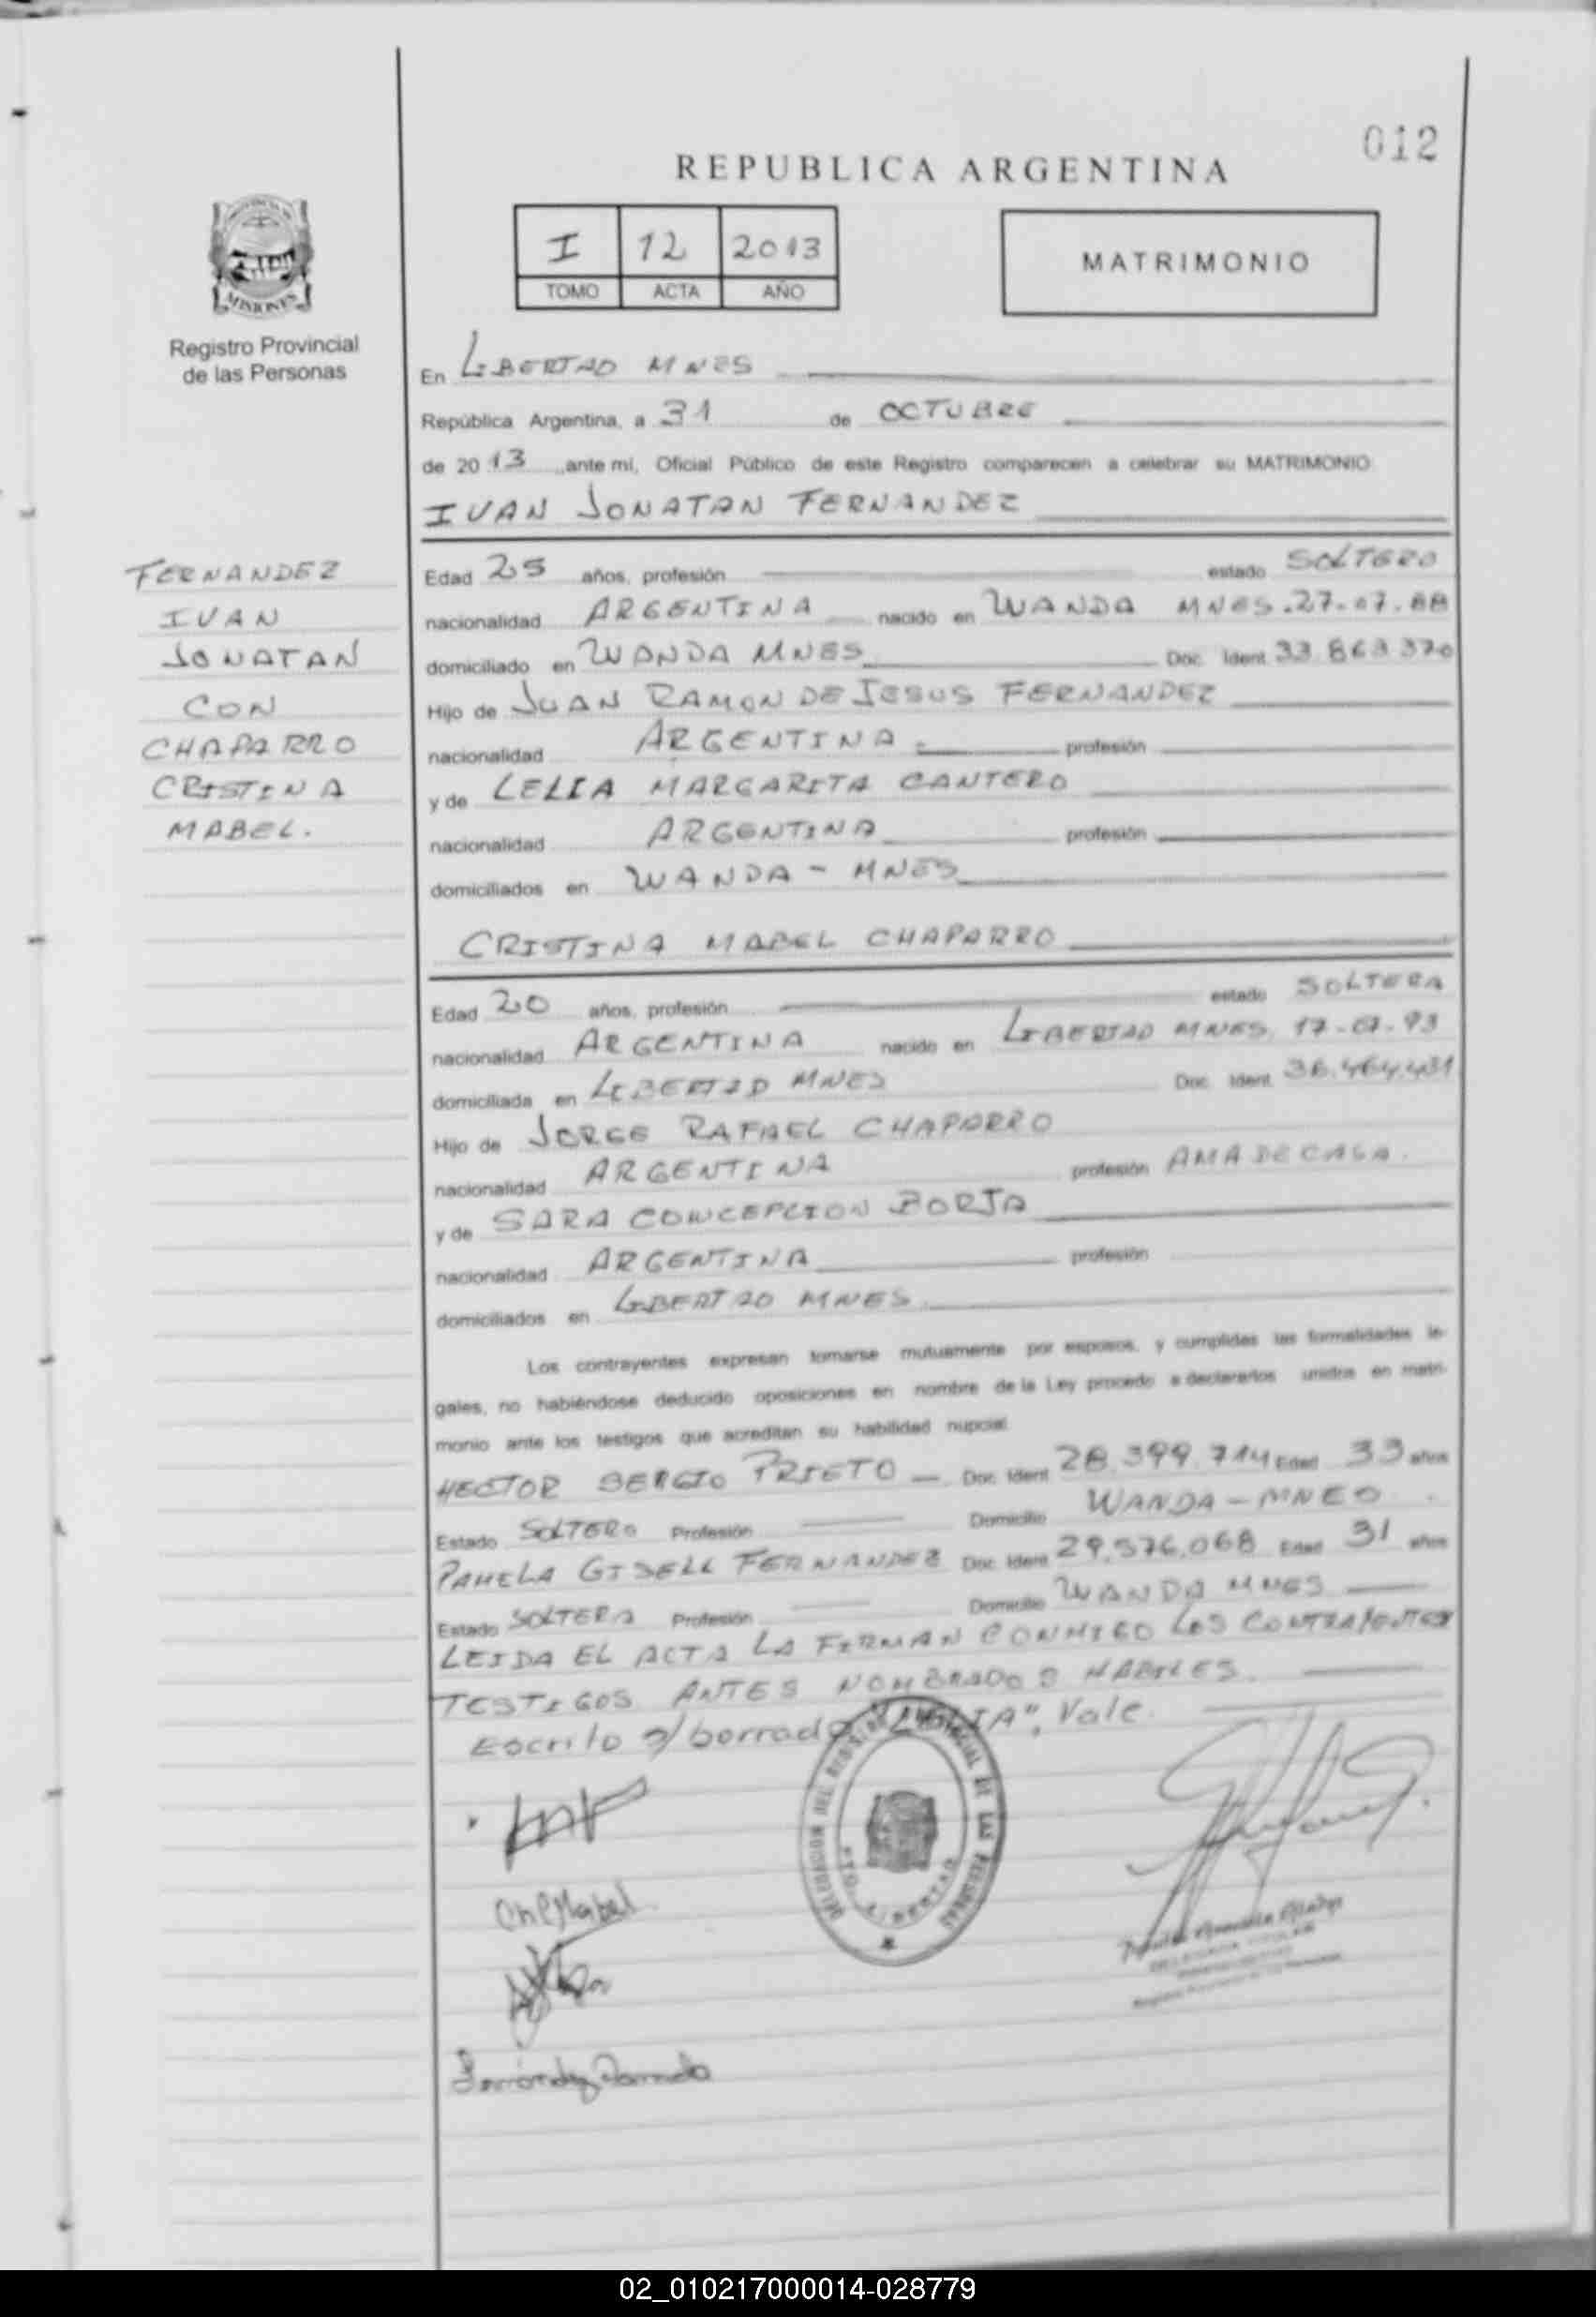 012
REPUBLICA ARGENTINA
I 12 2013
TOMO ACTA AÑO
MATRIMONIO
PROVINCIA DE
MISIONES
Registro Provincial
de las Personas
En LIBERTAD MNES
República Argentina, a 31 de OCTUBRE
de 20 13 ,ante mi, Oficial Público de este Registro comparecen a celebrar su MATRIMONIO
IVAN JONATAN FERNANDEZ
FERNANDEZ
IVAN
JONATAN
CON
CHAPARRO
CRISTINA
MABEL.
Edad 25 años, profesión estado SOLTERO
nacionalidad ARGENTINA nacido en WANDA MNES.27-07-88
domiciliado en WANDA MNES Doc. Ident 33.863.370
Hijo de JUAN RAMON DE JESUS FERNANDEZ
nacionalidad ARGENTINA.- profesión
y de LELIA MARGARITA CANTERO
nacionalidad ARGENTINA profesión
domiciliados en WANDA - MNES
CRISTINA MABEL CHAPARRO
Edad 20 años, profesión estado SOLTERA
nacionalidad ARGENTINA nacido en LIBERTAD MNES. 17-07-93
domiciliada en LIBERTAD MNES Doc. Ident.
Hijo de JORGE RAFAEL CHAPARRO
nacionalidad ARGENTINA profesión AMA DE CASA.
y de SARA CONCEPCION BORJA
nacionalidad ARGENTINA profesión
domiciliados en LIBERTAD MNES
Los contrayentes expresan tomarse mutuamente por esposos, y cumplidas las formalidades le-
gales, no habiéndose deducido oposiciones en nombre de la Ley procedo a declararlos unidos en matri-
monio ante los testigos que acreditan su habilidad nupcial.
HECTOR SERGIO PRIETO - Doc. Ident 28.399.714 Edad 33 años
Estado SOLTERO Profesión Domicilio WANDA - MNES
PAMELA GISELL FERNANDEZ Doc. Ident 29.576.068 Edad 31 años
Estado SOLTERA Profesión Domicilio WANDA MNES
LEIDA EL ACTA LA FIRMAN CONMIGO LOS CONTRAYENTES
TESTIGOS ANTES NOMBRADOS HABILES.
Escrito s/borrado "LELIA", Vale.
DELEGACION DEL REGISTRO PROVINCIAL DE LAS PERSONAS
PTO. LIBERTAD
Mabel
02_010217000014-028779